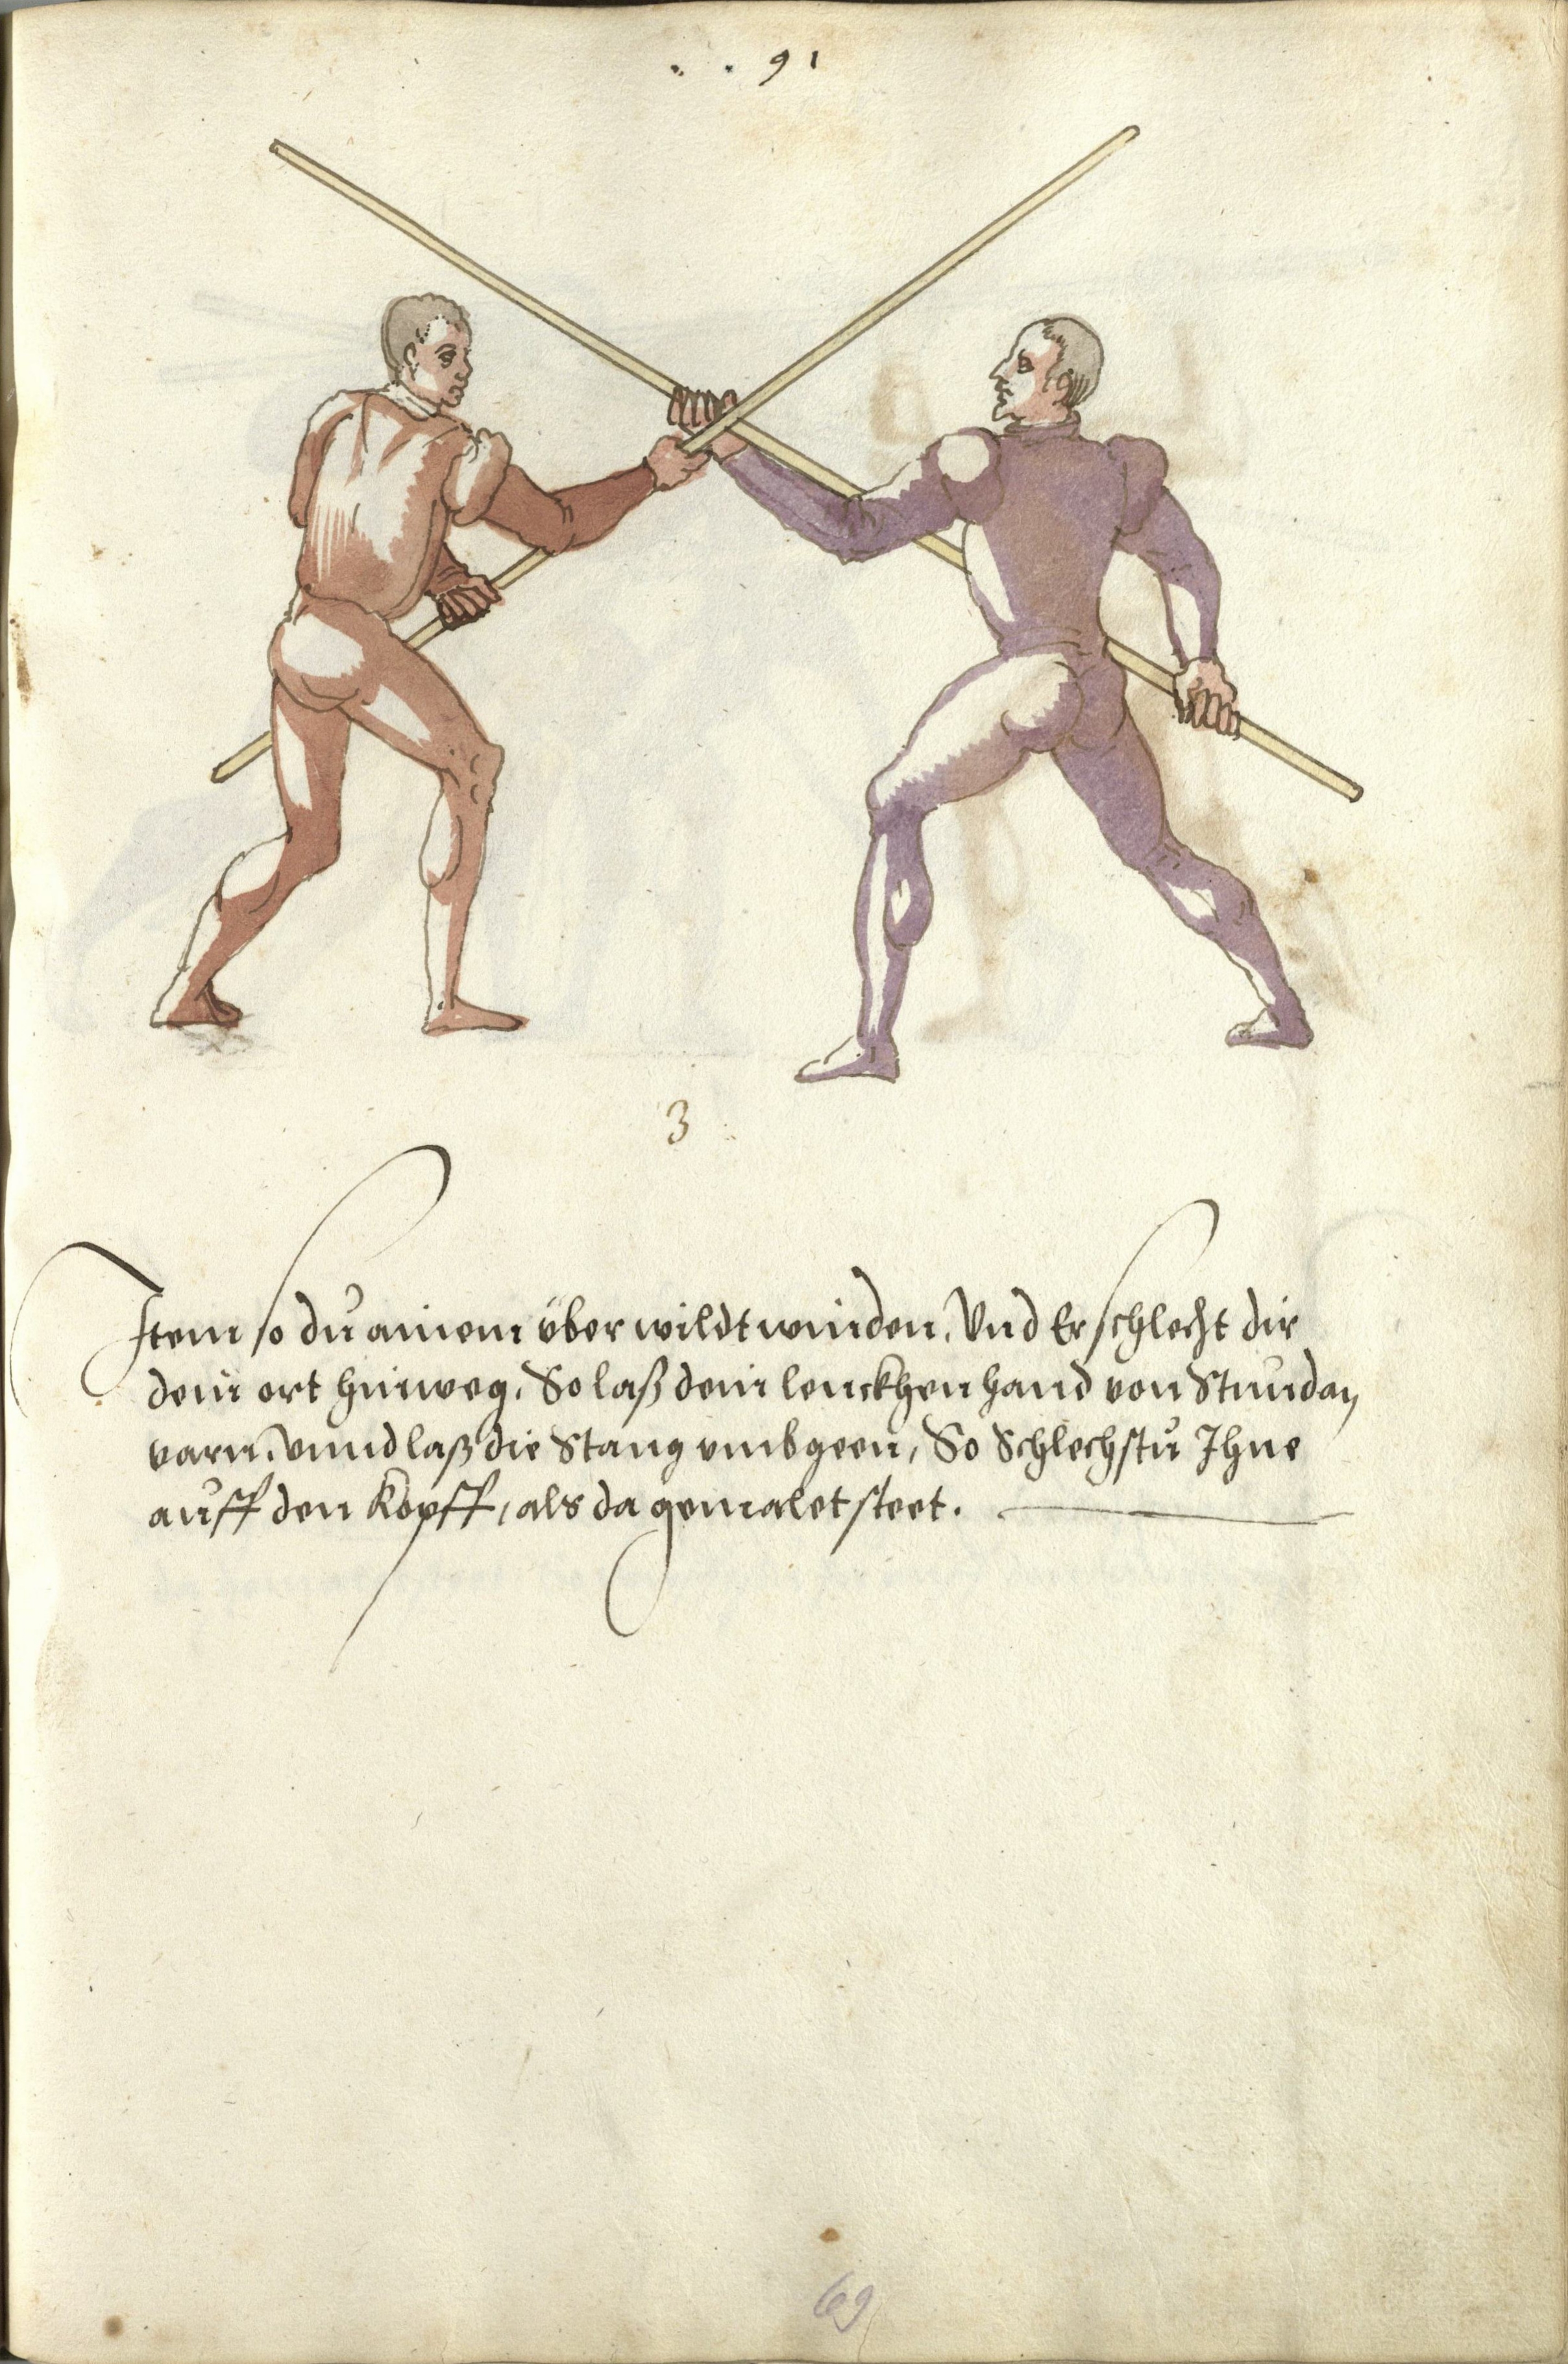 91
3
Item so du ainem über wildt winden, Vnd Er schlecht dir
dein ort hinweg, So laß dein lenckhen hand von Stundan
varn, vnnd laß die Stang vmbgeen, So Schlechstu Ihne
auff den Kopff, als da gemalet steet.
69